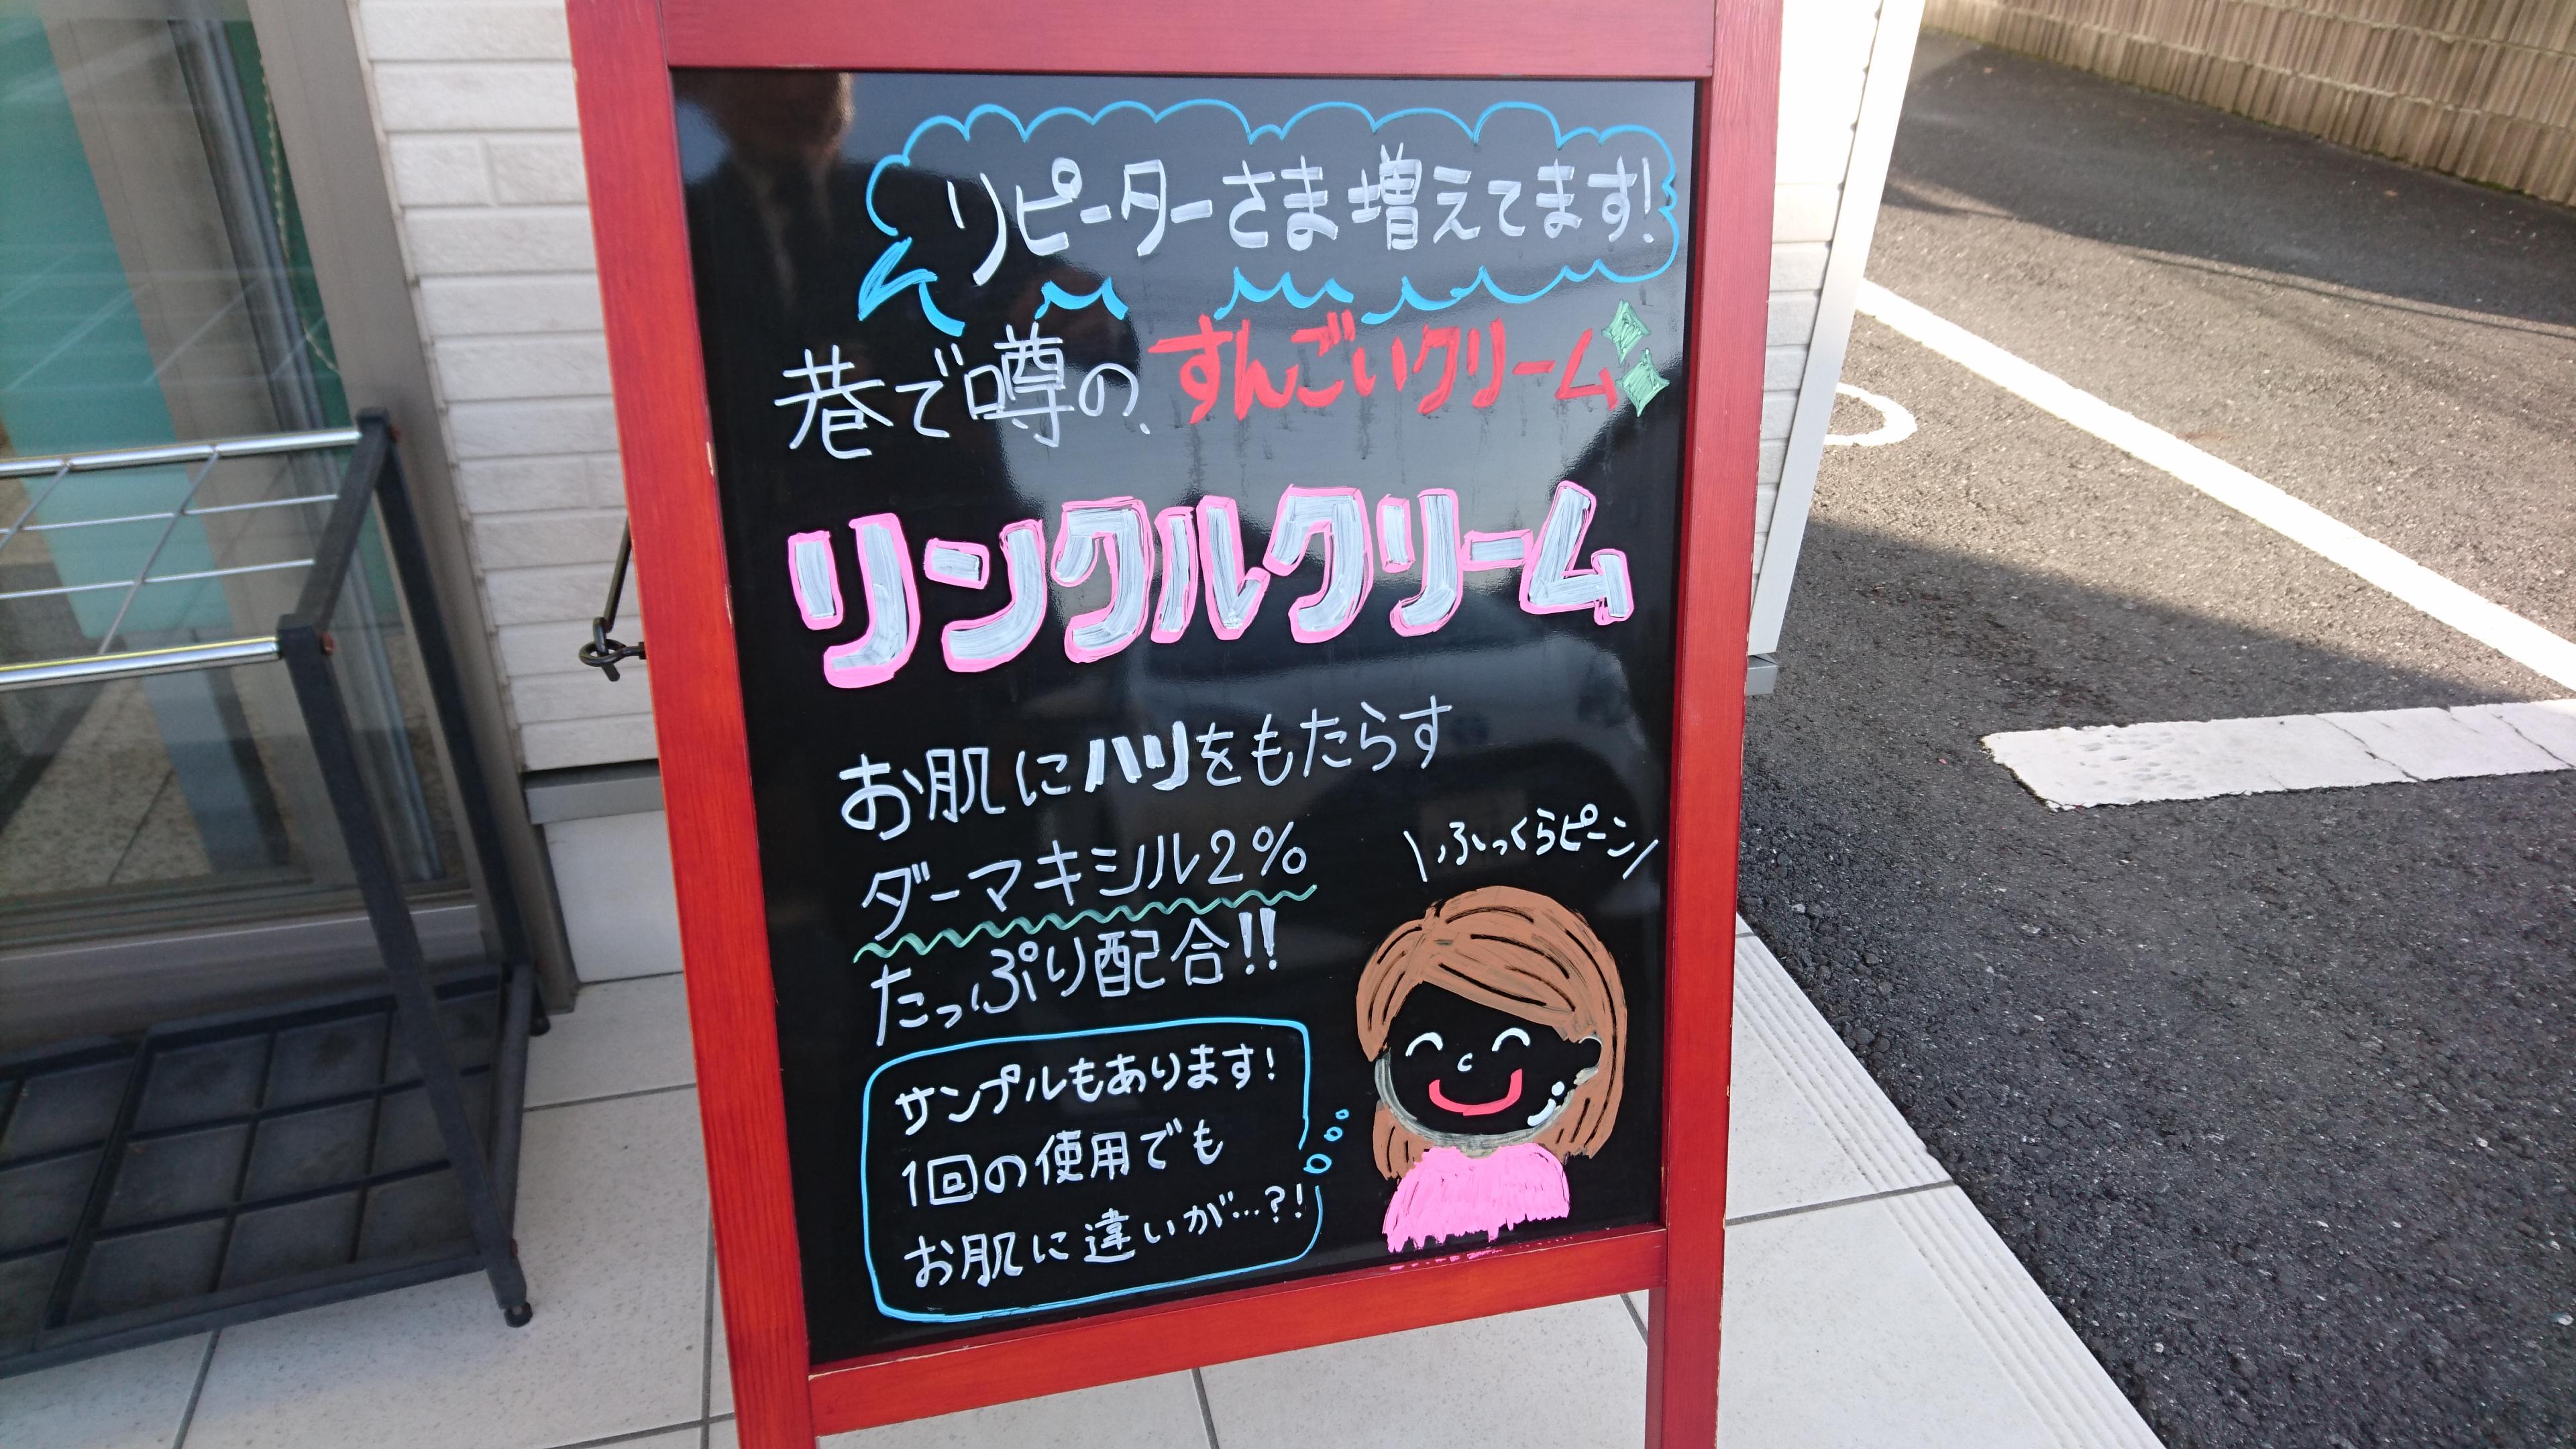 リピーターさま増えてます!
巷で噂の、すんごいクリーム
リンクルクリーム
お肌にハリをもたらす
ダーマキシル2%
たっぷり配合!!
\ふっくらピーン/
サンプルもあります!
1回の使用でも
お肌に違いが…?!